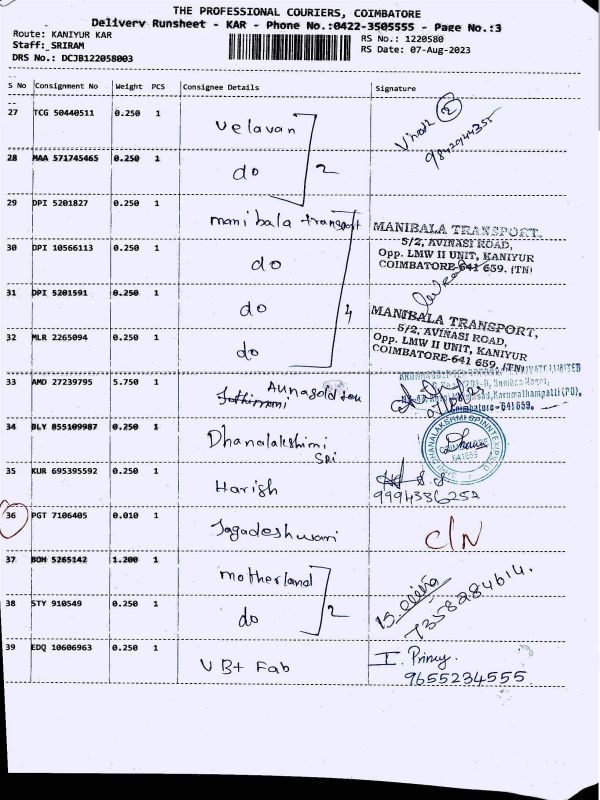 THE PROFESSIONAL COURIERS, COIMBATORE
Delivery Runsheet - KAR - Phone No.:0422-3505555 - Page No.:3
Route: KANIYUR KAR
RS No.: 1220580
Staff: SRIRAM
RS Date: 07-Aug-2023
DRS No.: DCJB122058003
S No Consignment No Weight PCS Consignee Details Signature
27 TCG 50440511 0.250 1 Velavan
28 MAA 571745465 0.250 1 do 2
29 DPI 5201827 0.250 1 manibala transport
MANIBALA TRANSPORT,
5/2, AVINASI ROAD,
Opp. LMW II UNIT, KANIYUR
COIMBATORE-641 659. (TN)
30 DPI 10566113 0.250 1 do
31 DPI 5201591 0.250 1 do 4
MANIBALA TRANSPORT,
5/2, AVINASI ROAD,
Opp. LMW II UNIT, KANIYUR
COIMBATORE-641 659. (TN)
32 MLR 2265094 0.250 1 do
33 AMD 27239795 5.750 1
Coimbatore-641659.
34 BLY 855109987 0.250 1 Dhanalakshimi
Sri
COIMBATORE
641659
35 KUR 695395592 0.250 1 Harish
36 PGT 7106405 0.010 1 Jagadeshwari C/N
37 BOM 5265142 1.200 1 motherland
38 STY 910549 0.250 1 do 2
7358284614.
39 EDQ 10606963 0.250 1 V B+ Fab
9655234555